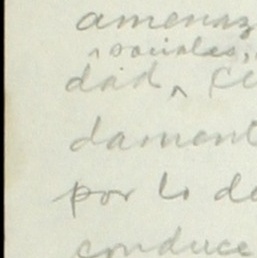 amenaz
sociales,
dad ^
dament
por lo de
conduce